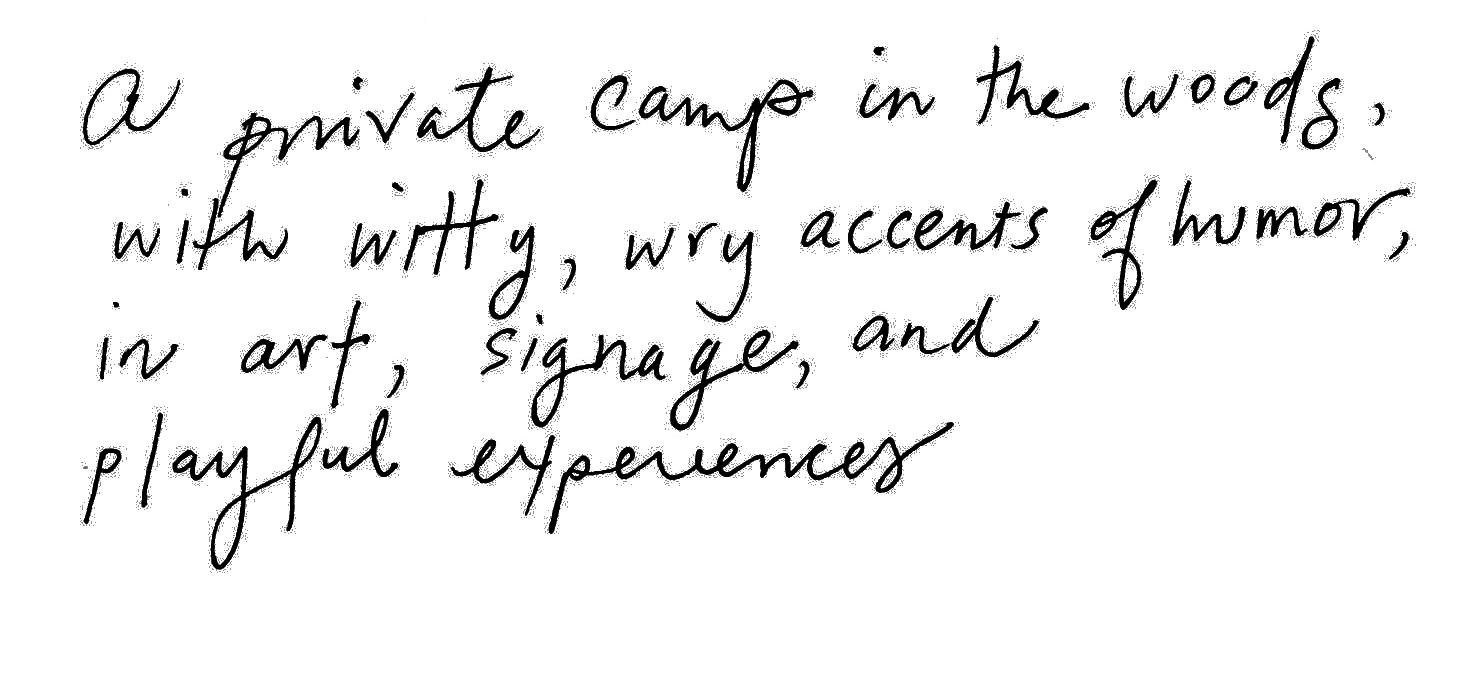 A private camp in the woods,
with witty, wry accents of humor,
in art, signage, and
playful experiences